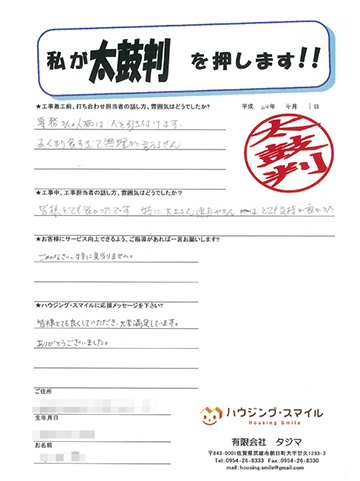 私が太鼓判を押します!!
★工事着工前、打ち合わせ担当者の話し方、雰囲気はどうでしたか?
平成 24年 4月 1日
専務さんの人柄は人を引き付けます。
太鼓判
★工事中、工事担当者の話し方、雰囲気はどうでしたか?
皆様とても良かったです 特に大工さん はとても気持が良かった
★お客様にサービス向上できるよう、ご指導があれば一言お願いします!!
ごめんなさい。特に見当りません。
★ハウジング・スマイルに応援メッセージを下さい!!
皆様とても良くしていただき、大変満足しています。
ありがとうございました。
ご住所
生年月日
お名前
ハウジング・スマイル
Housing Smile
有限会社 タジマ
〒843-0001佐賀県武雄市朝日町大字甘久1293-2
Tel:0954-28-8333 Fax:0954-28-8330
mail:housing.smile@gmail.com